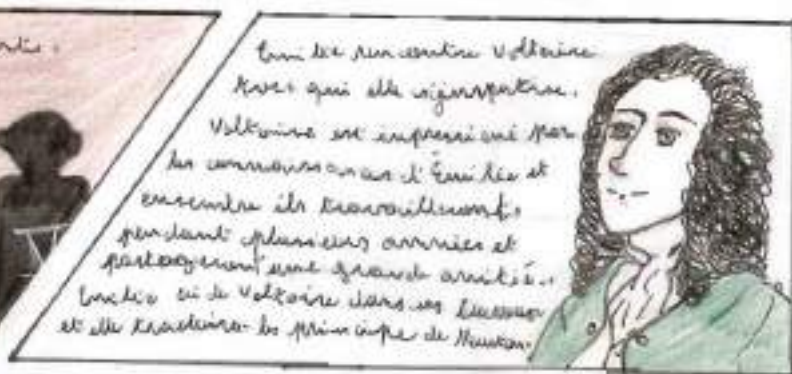 Emilie rencontre Voltaire
Avec qui elle
Voltaire est impressioné par
les connaissances d'Émilie et
ensemble ils travailleront
pendant plusieurs années et
partageront une grande amitié.
Emilie de Voltaire dans ses
et elle traduira les principe de Newton.